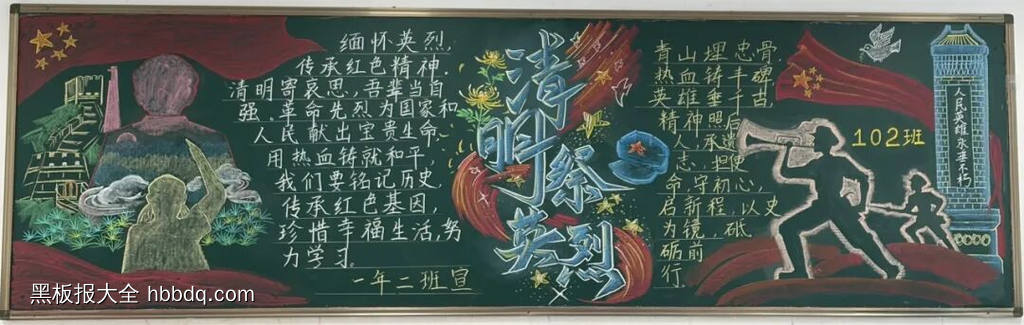 缅怀英烈,
传承红色精神.
清明寄哀思,吾辈当自
强、革命先烈为国家和
人民献出宝贵生命.
用热血铸就和平,
我们要铭记历史,
传承红色基因,
珍惜幸福生活,努
力学习。
一年二班宣
清明祭英烈
青山埋忠骨,
热血铸丰碑
英雄垂千古,
精神照后
人,承遗
志,担使
命,守初心,
启新程,以史
为镜,砥
砺前
行
102班
人民英雄永垂不朽
黑板报大全 hbbdq.com